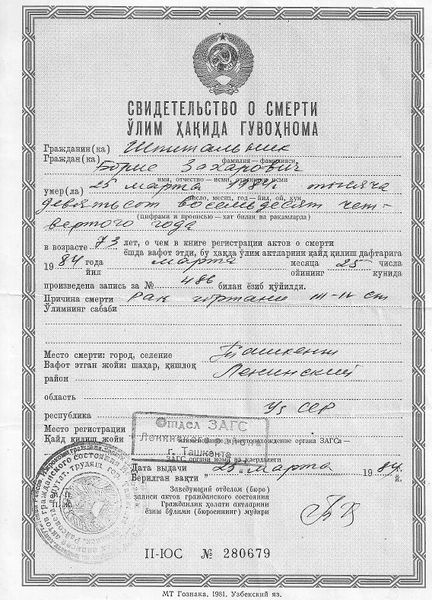 СВИДЕТЕЛЬСТВО О СМЕРТИ
ЎЛИМ ҲАҚИДА ГУВОҲНОМА
Гражданин(ка) Шпитальник
Граждан(ка) фамилия—фамилияси
Борис Захарович
имя, отчество—исми, отасининг исми
умер(ла) 25 марта 1984г. тысяча
число, месяц, год—йил, ой, кун
девятьсот восемьдесят чет-
вертого года
(цифрами и прописью—хат билан ва рақамларда)
в возрасте 73 лет, о чем в книге регистрации актов о смерти
ёшда вафот этди, бу ҳақда ўлим актларини қайд қилиш дафтарига
1984 года марта месяца 25 числа
йил ойининг кунида
произведена запись за № 486 билан ёзиб қўйилди.
Причина смерти Рак гортани III-IV ст
Ўлимнинг сабаби
Место смерти: город, селение Ташкент
Вафот этган жойи: шаҳар, қишлоқ
район Ленинский
область
республика Уз ССР
Место регистрации
Қайд қилиш жойи
Отдел ЗАГС
г. Ташкента
Дата выдачи 25 марта 1984 г.
Берилган вақти й.
Заведующий отделом (бюро)
записи актов гражданского состояния
Гражданлик ҳолати актларини
ёзиш бўлими (бюросининг) мудири
II-ЮС № 280679
МТ Гознака, 1981. Узбекский яз.